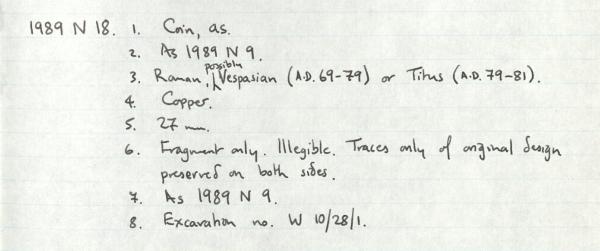 1989 N 18. 1. Coin, as.
2. As 1989 N 9.
3. Roman, possibly Vespasian (A.D. 69-79) or Titus (A.D. 79-81).
4. Copper.
5. 27 mm.
6. Fragment only. Illegible. Traces only of original design
preserved on both sides.
7. As 1989 N 9.
8. Excavation no. W 10/28/1.